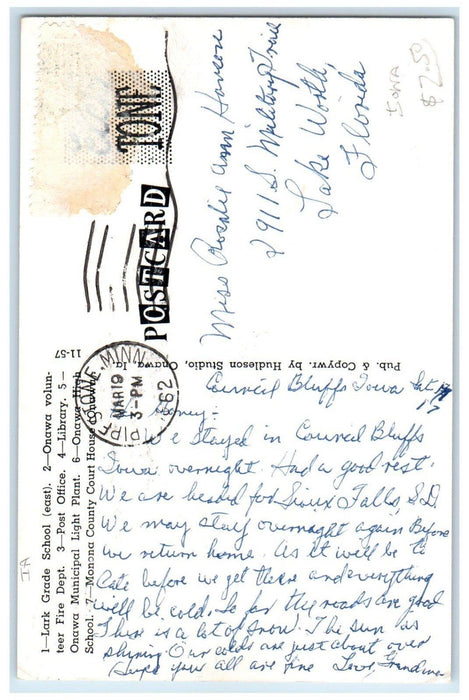 1—Lark Grade School (east). 2—Onawa volun-
teer Fire Dept. 3—Post Office. 4—Library. 5—
Onawa Municipal Light Plant. 6—Onawa High
School. 7—Monona County Court House Onawa
11-57
POSTCARD
Pub. & Copywr. by Hudleson Studio, Onawa, Ia.
PIPESTONE, MINN.
MAR 19
3-PM
1962
IA
Iowa
$2.50
Miss Rozalie Ann
2911 S. Military Trail
Lake Worth,
Florida
Council Bluffs Iowa Sat,
17
Honey:-
We stayed in Council Bluffs
Iowa overnight. Had a good rest.
We are headed for Sioux Falls, S.D.
We may stay overnaght again Before
we return home. As it will be to
Late before we get there and everything
will be cold. So far the roads are good
There is a lot of snow. The sun is
shining Our colds are just about over
Hope your all are fine Love, Grandma